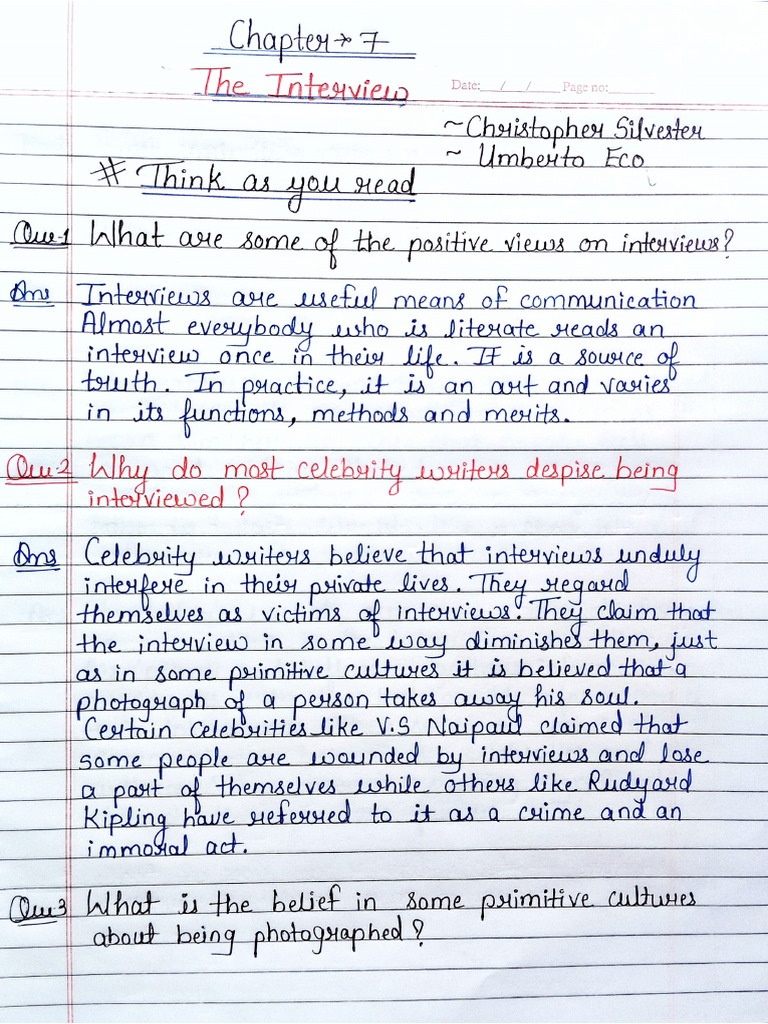 Chapter → 7
The Interview
Date: / / Page no:
~ Christopher Silvester
~ Umberto Eco
# Think as you read
Que-1 What are some of the positive views on interviews?
Ans Interviews are useful means of communication
Almost everybody who is literate reads an
interview once in their life. It is a source of
truth. In practice, it is an art and varies
in its functions, methods and merits.
Que-2 Why do most celebrity writers despise being
interviewed?
Ans Celebrity writers believe that interviews unduly
interfere in their private lives. They regard
themselves as victims of interviews. They claim that
the interview in some way diminishes them, just
as in some primitive cultures it is believed that a
photograph of a person takes away his soul.
Certain celebrities like V.S Naipaul claimed that
some people are wounded by interviews and lose
a part of themselves while others like Rudyard
Kipling have referred to it as a crime and an
immoral act.
Que 3 What is the belief in some primitive cultures
about being photographed?